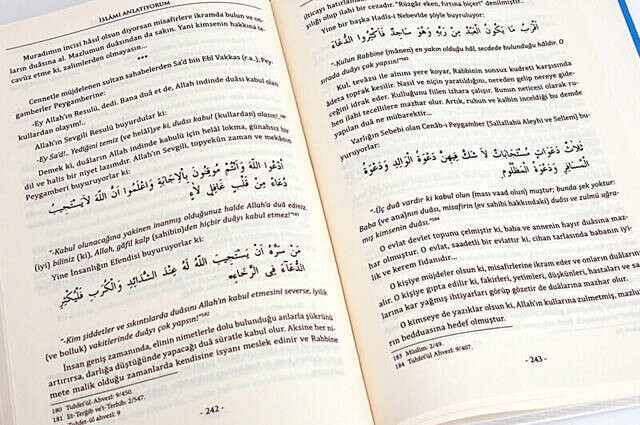 İSLÂMI ANLATIYORUM
Muradımın incisi hâsıl olsun diyorsan misafirlere ikramda bulun ve on-
ların duâsına al. Mazlumun duâsından da sakın. Yani kimsenin hakkına te-
cavüz etme ki, zalimlerden olmayasın...
***
Cennetle müjdelenen sultan sahabelerden Sa'd bin Ebî Vakkas (r.a.), Pey-
gamberler Peygamberine:
-Ey Allah'ın Resulü, dedi. Bana duâ et de, Allah indinde duâsı kabul olan
kullardan olayım!..
Allah'ın Sevgili Resulü buyurdular ki:
-Ey Sa'd!.. Yediğini temiz (ve helâl)ye ki, duâsı kabul (kullardan) olasın!..
Demek ki, duâların Allah indinde kabulü için helâl lokma, günahsız bir
dil ve halis bir niyet lazımdır. Allah'ın Sevgilisi, topyekûn zaman ve mekânın
Peygamberi buyuruyorlar ki:
اُدْعُوا اللهَ وَاَنْتُمْ مُوقِنُونَ بِالْاِجَابَةِ وَاعْلَمُوا اَنَّ اللهَ لَا يَسْتَجِيبُ
دُعَاءً مِنْ قَلْبٍ غَافِلٍ لَاهٍ
"-Kabul olunacağına yakinen inanmış olduğunuz halde Allah'a duâ ediniz.
(iyi) biliniz (ki), Allah, gâfil kalp (sahibin)den hiçbir duâyı kabul etmez!"
Yine İnsanlığın Efendisi buyuruyorlar ki:
مَنْ سَرَّهُ اَنْ يَسْتَجِيبَ اللهُ لَهُ عِنْدَ الشَّدَائِدِ وَالْكُرَبِ فَلْيُكْثِرِ
الدُّعَاءَ فِى الرَّخَاءِ
"-Kim şiddetler ve sıkıntılarda duâsını Allah'ın kabul etmesini severse, iyilik
(ve bolluk) vakitlerinde duâyı çok yapsın!"
İnsan geniş zamanında, elinin nimetlerle dolu bulunduğu anlarla şükrünü
artırırsa, darlığa düştüğünde yapacağı duâ süratle kabul olur. Aksine her ni-
mete malik olduğu zamanlarda kendisine isyanı meslek edinir ve Rabbine
180 Tuhfet'ül-Ahvezî: 9/450.
181 Et-Terğib ve't-Terhib: 2/547.
Tuhfet-ül ahvezî: 9
- 242 -
ilticayı hatırlamaz
şılığı olup ilahi bir cezadır.
Yine bir başka Hadîs-i Nebevîde şöyle buyruluyor:
اَقْرَبُ مَا يَكُونُ الْعَبْدُ مِنْ رَبِّهِ وَهُوَ سَاجِدٌ فَاَكْثِرُوا الدُّعَاءَ
"-Kulun Rabbine (mânen) en yakın olduğu hâl, secdede bulunduğu hâldir. O
sırada duâyı çok yapınız!"
Kul, tevâzu ile alnını yere koyar, Rabbinin sonsuz kudreti karşısında
âdeta toprak kesilir. Nasıl ve niçin yaratıldığını, nereden gelip nereye gide-
ceğini idrak eder. Kulluğunu fiilen izhara çalışır. Bunun neticesi olarak ru-
hen ilahi tecellilere mazhar olur. Artık, ruhun ve kalbin inceldiği bu demde
yapılan duâ ne mübarektir...
Varlığın Sebebi olan Cenâb-ı Peygamber (Sallallahü Aleyhi ve Sellem) bu-
yuruyorlar:
ثَلَاثُ دَعَوَاتٍ مُسْتَجَابَاتٌ لَا شَكَّ فِيهِنَّ دَعْوَةُ الْوَالِدِ وَدَعْوَةُ
الْمُسَافِرِ وَدَعْوَةُ الْمَظْلُومِ
"-Üç duâ vardır ki kabul olun (ması vaad olun) muştur; bunda şek yoktur:
Baba (ve ana)nın duâsı, misafirin (ev sahibi hakkındaki) duâsı ve zulmü uğra-
mış kimsenin duâsı."
O evlat devlet topunu çelmiştir ki, baba ve annenin hayır duâsına maz-
har olmuştur. O evlat, saadetli bir evlattır ki, cihan tarlasında babanın iyi-
lik ve kerem fidanıdır...
O kişiye müjdeler olsun ki, misafirlerine ikram eder ve onların duâlarını
alır. O kişiye gıpta edilir ki, fakirleri, yetimleri, düşkünleri, hastaları ve sa-
larına kar yağmış ihtiyarları görüp gözetir de duâlarına mazhar olur.
O kimseye de yazıklar olsun ki, Allah'ın kullarına zulmetmiş, mazlum-
rın bedduasına hedef olmuştur.
183 Müslim: 2/49.
184 Tuhfet'ül Ahvezî: 9/407.
- 243 -